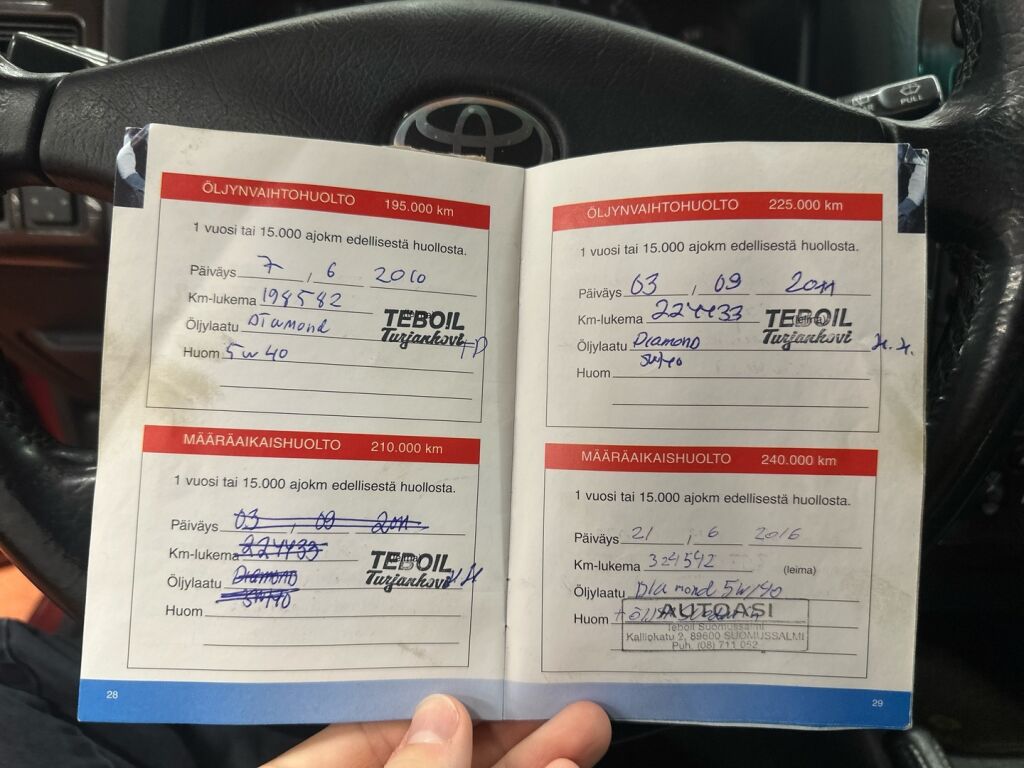 PULL
ÖLJYNVAIHTOHUOLTO 195.000 km
1 vuosi tai 15.000 ajokm edellisestä huollosta.
Päiväys 7 , 6 2010
Km-lukema 198582
Öljylaatu Diamond
TEBOIL
Turjanhovi
Huom 5W40
MÄÄRÄAIKAISHUOLTO 210.000 km
1 vuosi tai 15.000 ajokm edellisestä huollosta.
Päiväys 03 , 09 2011
Km-lukema 224433
(leima)
TEBOIL
Turjanhovi
Öljylaatu Diamond
5W40
Huom
28
ÖLJYNVAIHTOHUOLTO 225.000 km
1 vuosi tai 15.000 ajokm edellisestä huollosta.
Päiväys 03 , 09 2011
Km-lukema 224433
(leima)
TEBOIL
Turjanhovi
Öljylaatu Diamond
5W40
Huom
MÄÄRÄAIKAISHUOLTO 240.000 km
1 vuosi tai 15.000 ajokm edellisestä huollosta.
Päiväys 21 , 6 2016
Km-lukema 324542 (leima)
Öljylaatu Diamond 5W40
Huom
AUTOASI
Teboil Suomussalmi
Kalliokatu 2, 89600 SUOMUSSALMI
Puh. (08) 711 052
29